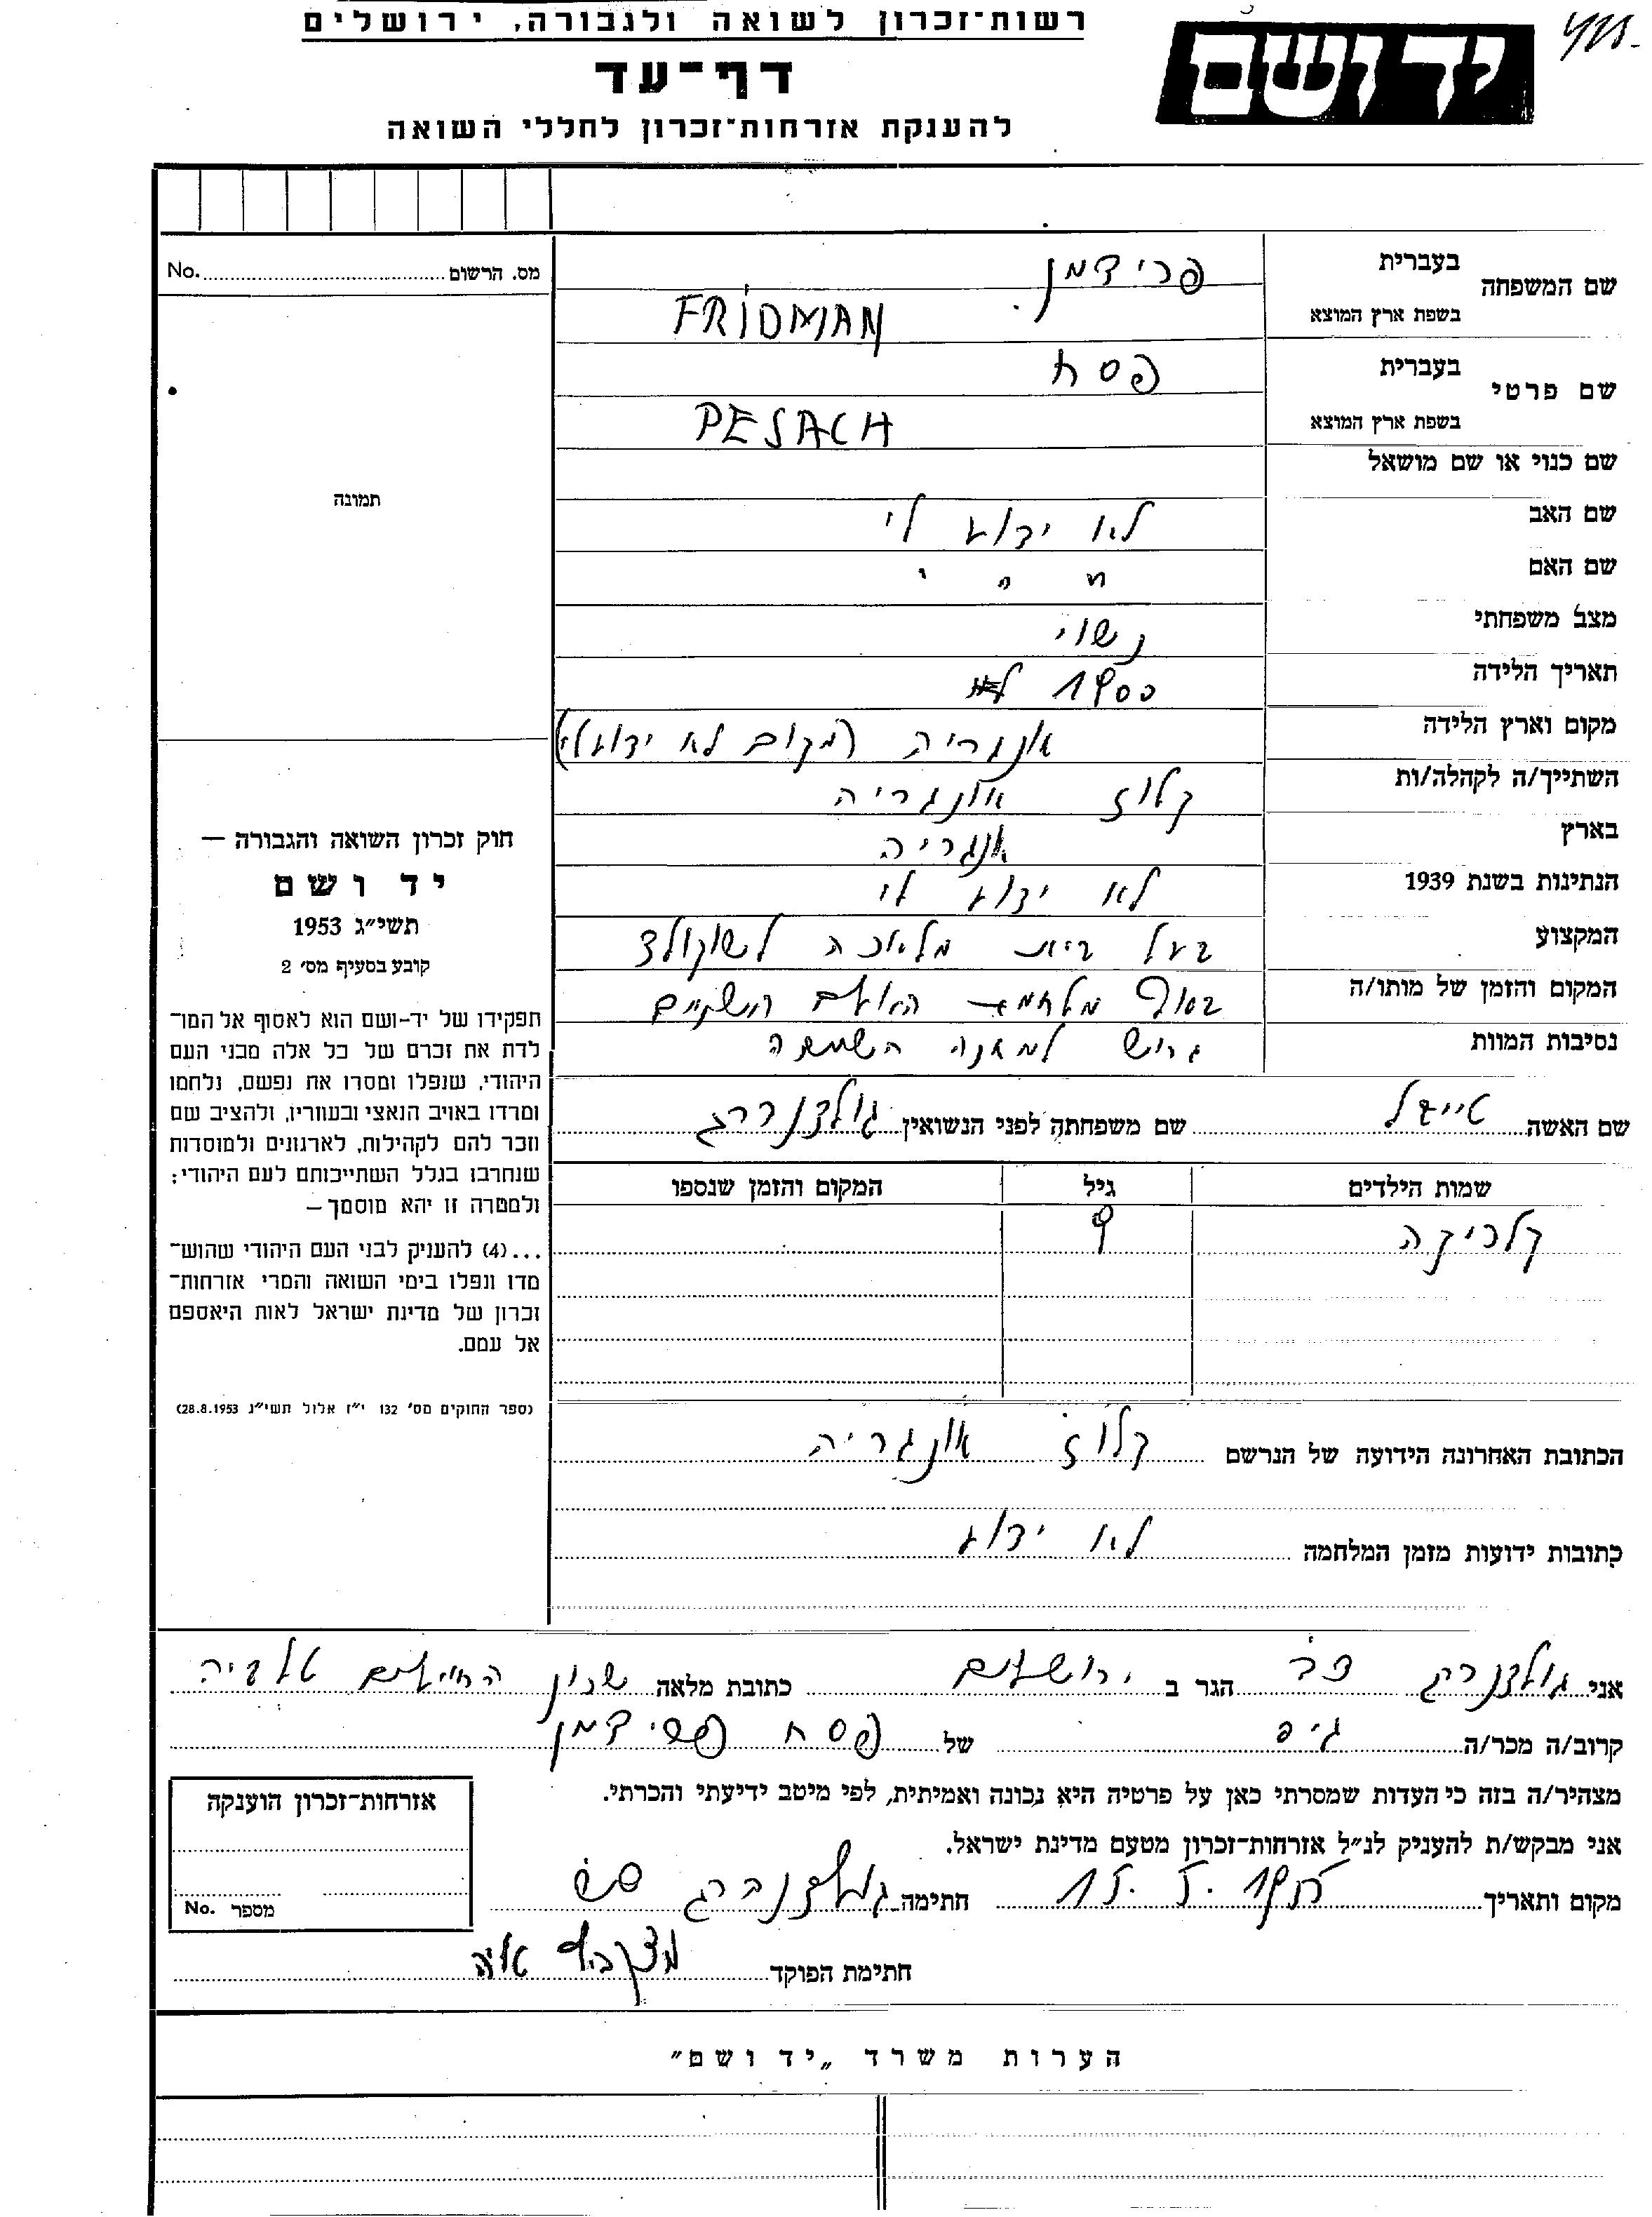 רשות־זכרון לשואה ולגבורה, ירושלים
דף־עד
להענקת אזרחות־זכרון לחללי השואה
יד ושם
מס. הרשום No.
שם המשפחה
בעברית פרידמן
בשפת ארץ המוצא FRIDMAN
שם פרטי
בעברית פסח
בשפת ארץ המוצא PESACH
שם כנוי או שם מושאל
שם האב לא ידוע לי
שם האם " " "
מצב משפחתי נשוי
תאריך הלידה 1900
מקום וארץ הלידה אונגריה (מקום לא ידוע לי)
השתייך/ה לקהלה/ות קלוז אונגריה
בארץ אונגריה
הנתינות בשנת 1939 לא ידוע לי
המקצוע בעל בית מלאכה לשוקולד
המקום והזמן של מותו/ה בסוף מלחמת העולם השניה
נסיבות המוות גרוש למחנה השמדה
שם האשה שם משפחתה לפני הנשואין גולדנברג
שמות הילדים גיל המקום והזמן שנספו
קלריקה 9
הכתובת האחרונה הידועה של הנרשם קלוז אונגריה
כתובות ידועות מזמן המלחמה לא ידוע
תמונה
חוק זכרון השואה והגבורה —
יד ושם
תשי״ג 1953
קובע בסעיף מס׳ 2
תפקידו של יד-ושם הוא לאסוף אל המו־
לדת את זכרם של כל אלה מבני העם
היהודי, שנפלו ומסרו את נפשם, נלחמו
ומרדו באויב הנאצי ובעוזריו, ולהציב שם
וזכר להם לקהילות, לארגונים ולמוסדות
שנחרבו בגלל השתייכותם לעם היהודי;
ולמטרה זו יהא מוסמך —
...(4) להעניק לבני העם היהודי שהוש־
מדו ונפלו בימי השואה והמרי אזרחות־
זכרון של מדינת ישראל לאות היאספם
אל עמם.
(ספר החוקים מס׳ 132 י״ז אלול תשי״ג 28.8.1953)
אני גולדנברג הגר ב ירושלים כתובת מלאה שכון טלביה
קרוב/ה מכר/ה גיס של פסח פרידמן
מצהיר/ה בזה כי העדות שמסרתי כאן על פרטיה היא נכונה ואמיתית, לפי מיטב ידיעתי והכרתי.
אני מבקש/ת להעניק לנ״ל אזרחות־זכרון מטעם מדינת ישראל.
מקום ותאריך חתימה גולדנברג
חתימת הפוקד
אזרחות־זכרון הוענקה
מספר No.
הערות משרד „יד ושם״